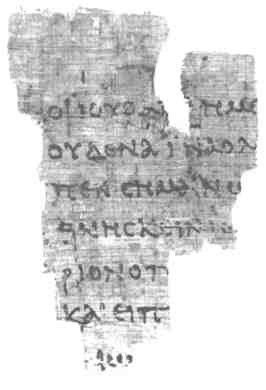 ΟΙ ΙΟΥΔΑΙ ΗΜΕ
ΟΥΔΕΝΑ ΙΝΑ Ο ΛΟ
ΠΕΝ CΗΜΑΙΝΩ
ΘΝΗCΚΕΙΝ Ι
ΡΙΟΝ Ο Π
ΚΑΙ ΕΙΠ